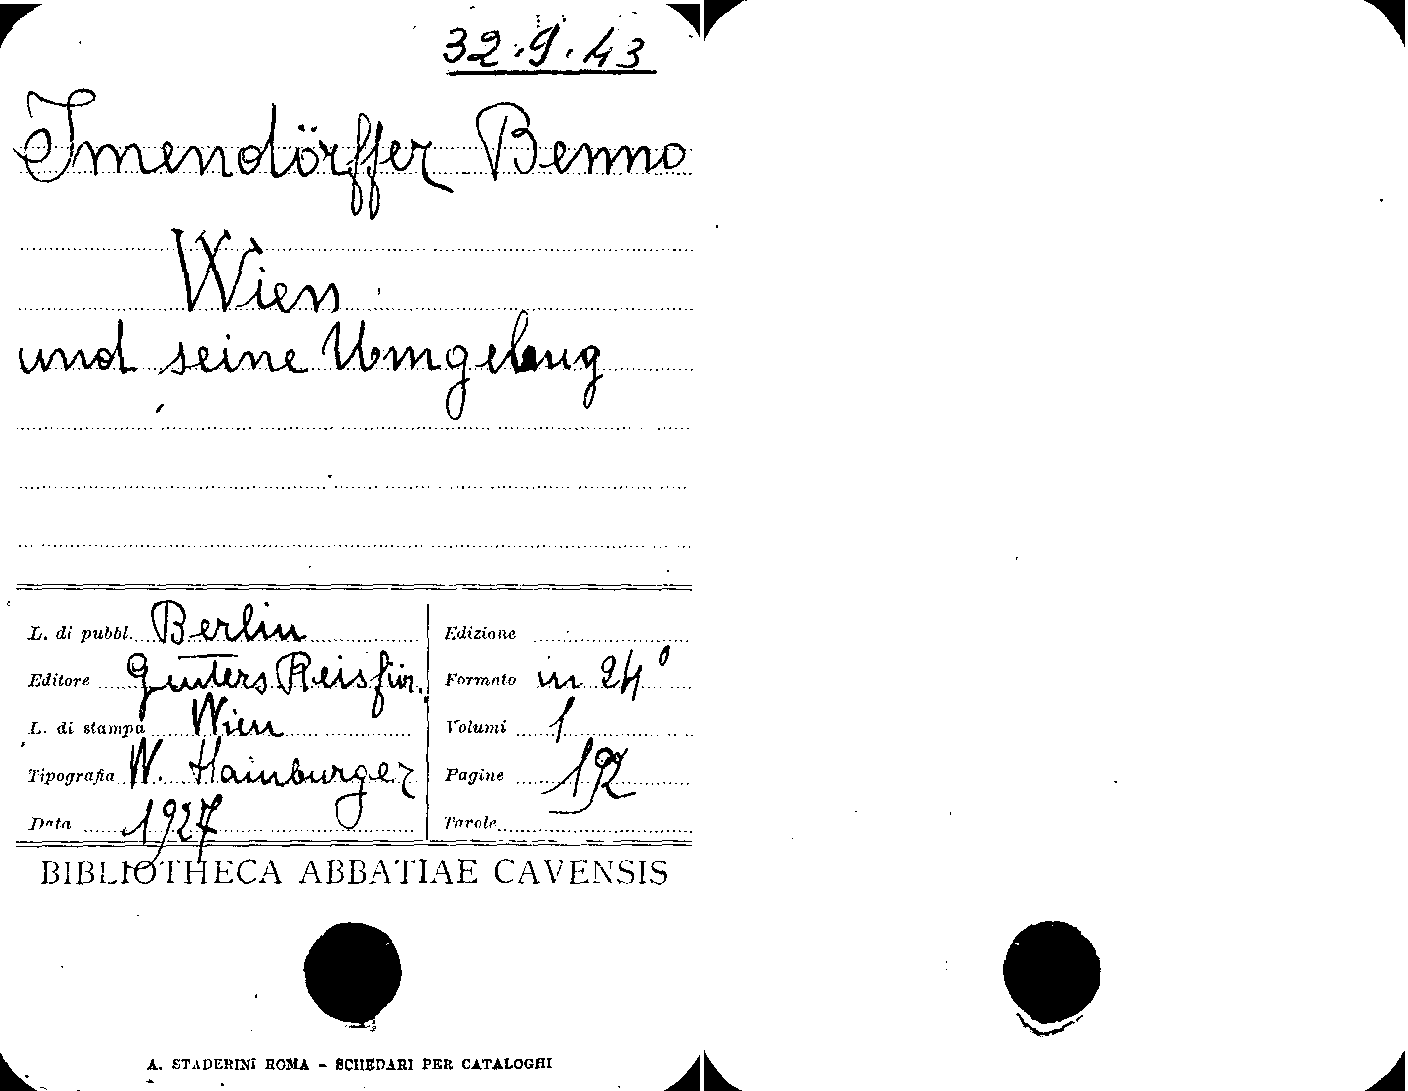 32.9.43
Imendörffer Benno
Wien
und seine Umgebug
L. di pubbl. Berlin
Editore Reisfür.
L. di stampa Wien
Tipografia W. Hamburger
Data 1927
Edizione
Formato in 24°
Volumi 1
Pagine
Tavole
BIBLIOTHECA ABBATIAE CAVENSIS
A. STADERINI ROMA - SCHEDARI PER CATALOGHI